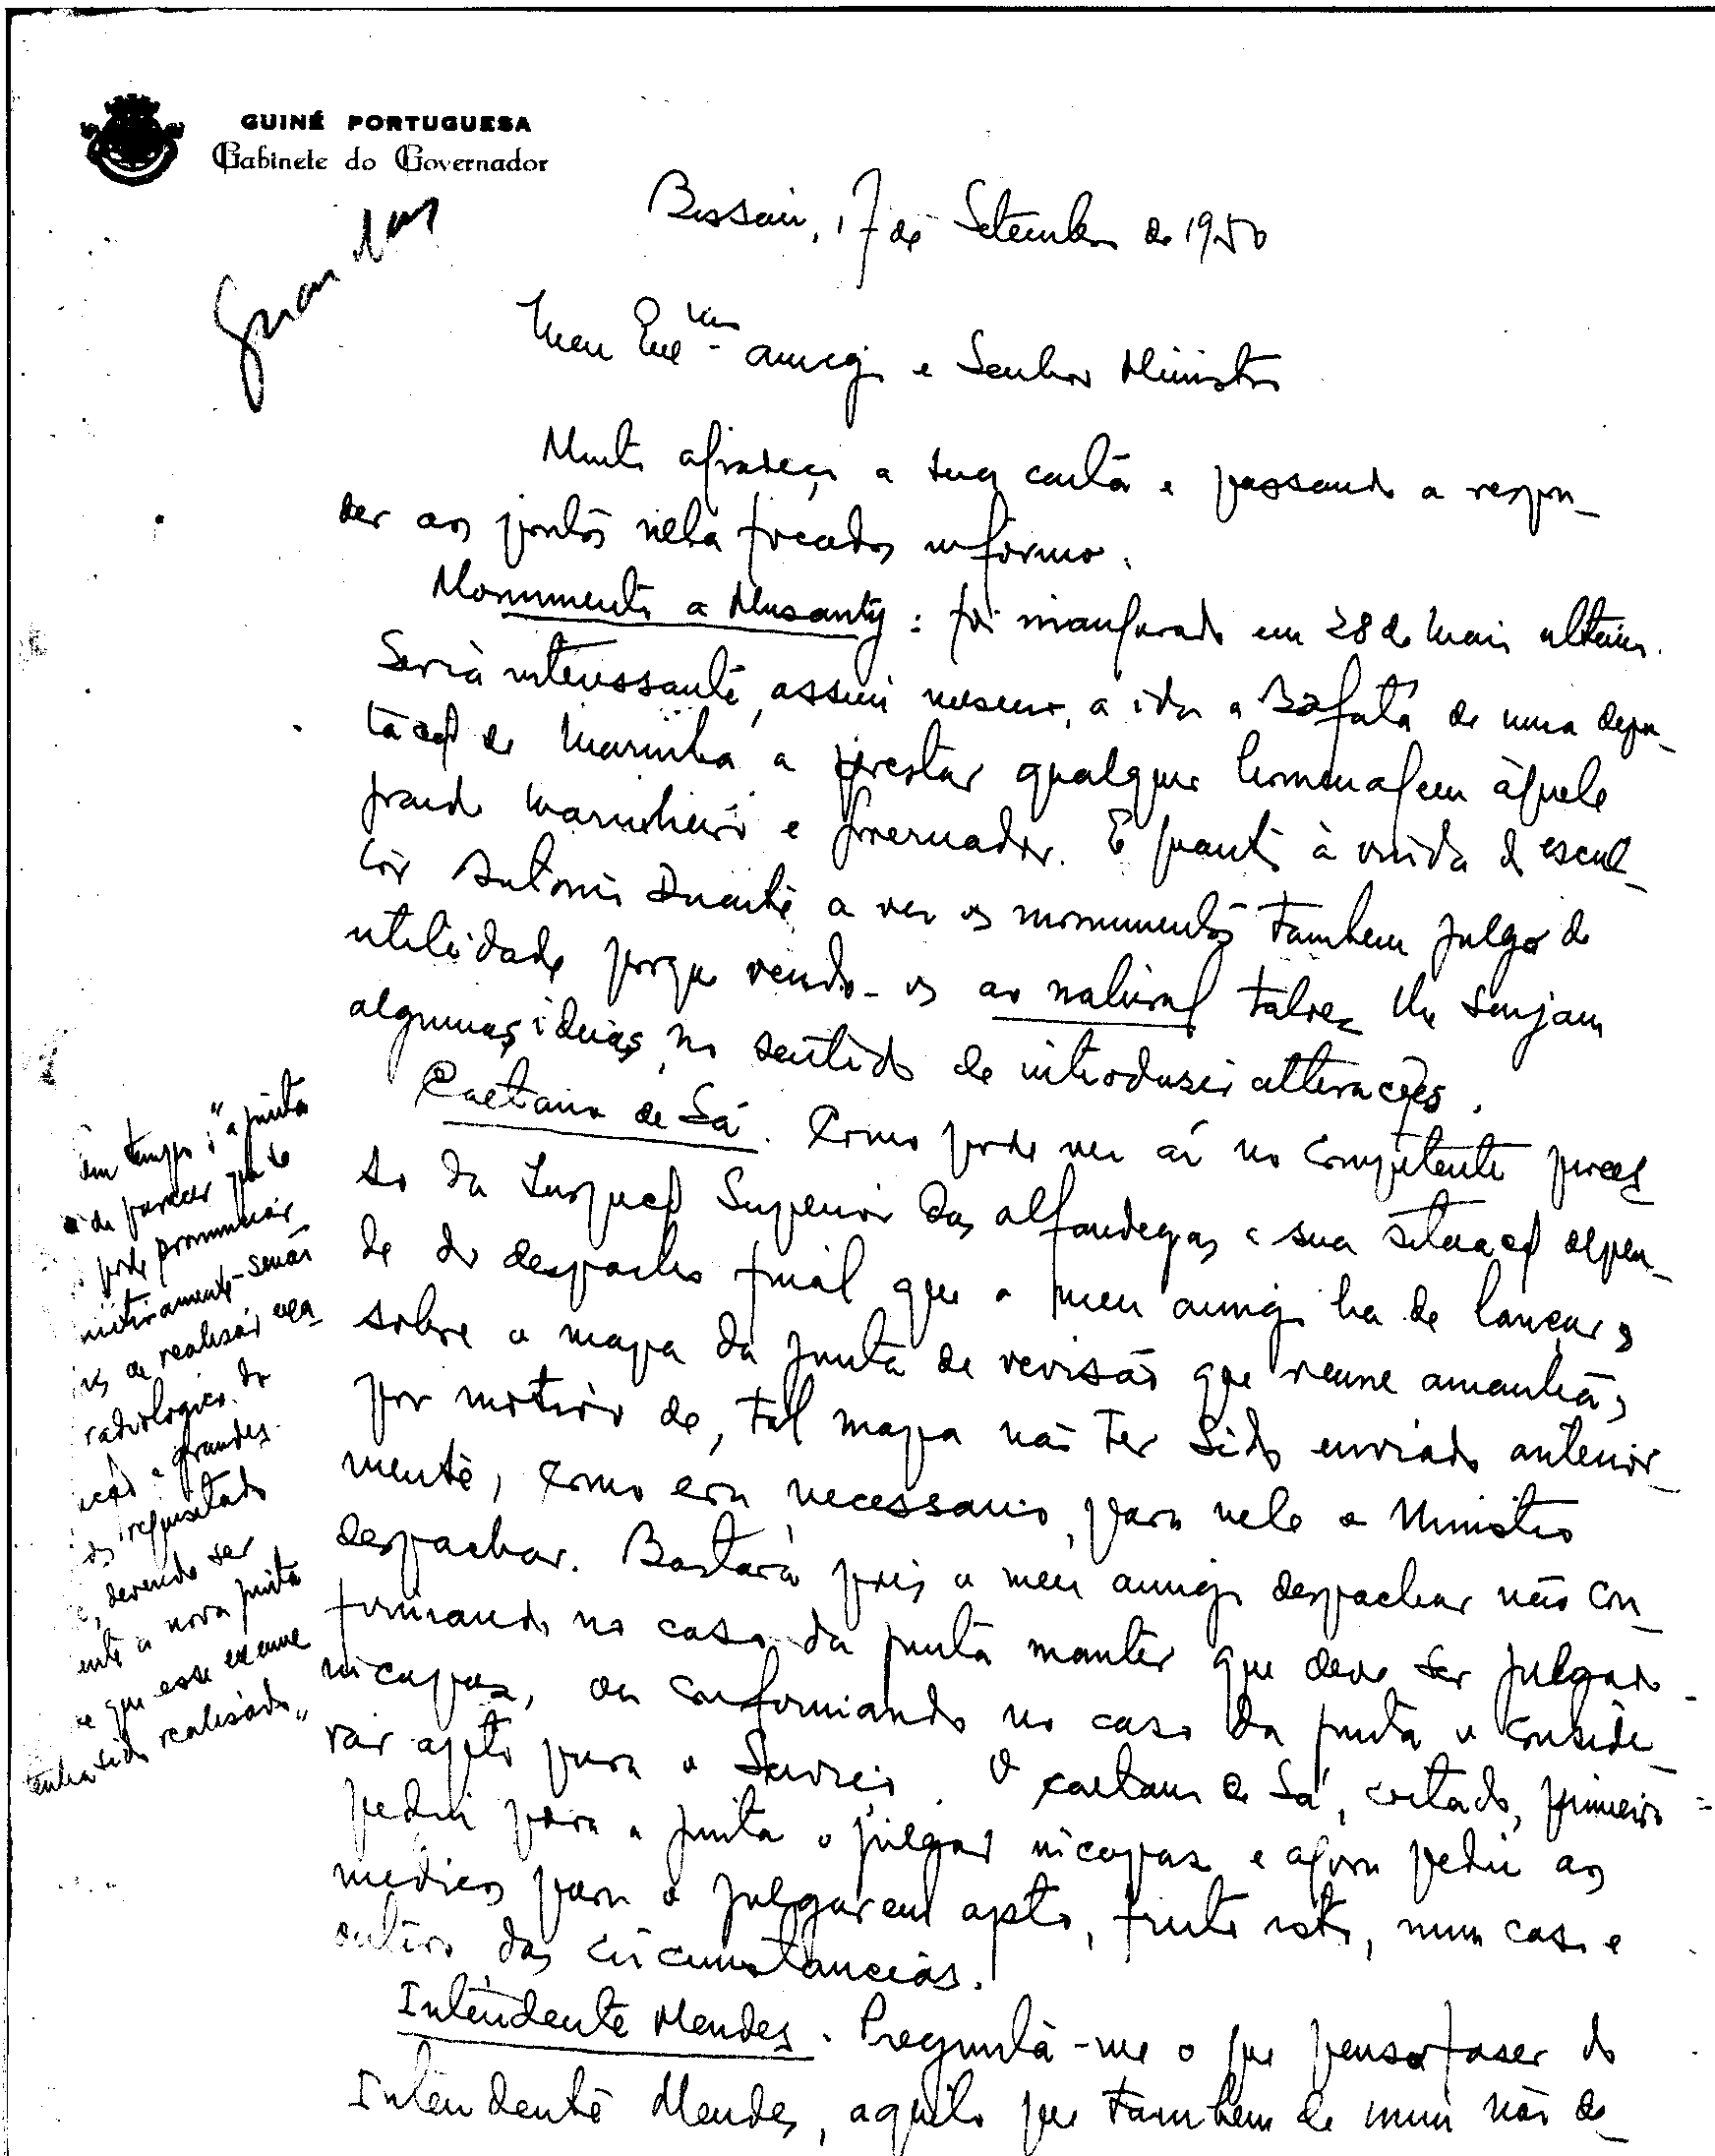 GUINÉ PORTUGUESA
Gabinete do Governador
Guardar
Bissau, 17 de Setembro de 1950
Meu Exmo amigo e Senhor Ministro
Muito agradeço a sua carta e passando a respon-
der aos pontos nela focados informo.
Monumento a Musanty: foi inaugurado em 28 de Maio ultimo.
Seria interessante, assim mesmo, a ida a Bafatá de uma depu-
tação de Marinha a prestar qualquer homenagem àquele
grande marinheiro e governador. E quanto à vinda do escul-
tor Antonio Duarte a ver os monumentos tambem julgo de
utilidade porque vendo-os ao natural talvez lhe surjam
algumas ideias no sentido de introduzir alterações.
Caetano de Sá. Como pode ver aí no competente proces-
so da Inspeção Superior das Alfandegas a sua situação depen-
de do despacho final que o meu amigo ha de lançar,
sobre o mapa da junta de revisão que reune amanhã,
por motivo de, tal mapa não ter sido enviado anterior-
mente, como era necessario, para nele o Ministro
despachar. Bastará pois o meu amigo despachar não con-
firmando no caso da junta manter que deve ser julgado
incapaz, ou confirmando no caso da junta o conside-
rar apto para o Serviço. O Caetano de Sá, coitado, primeiro
pediu para a junta o julgar incapaz e agora pediu aos
medicos para o julgarem apto, fruto isto, num caso e
outro das circumstancias.
Intendente Mendes. Pregunta-me o que penso fazer do
Intendente Mendes, aquilo que tambem de mim não de-
em tempo: "a junta
é de parecer que se
pode pronunciar
senão
de realisar exa
radiologico do
a grandes
requisitado
devendo ser
ente a nova junta
e que esse exame
tenha sido realisado"